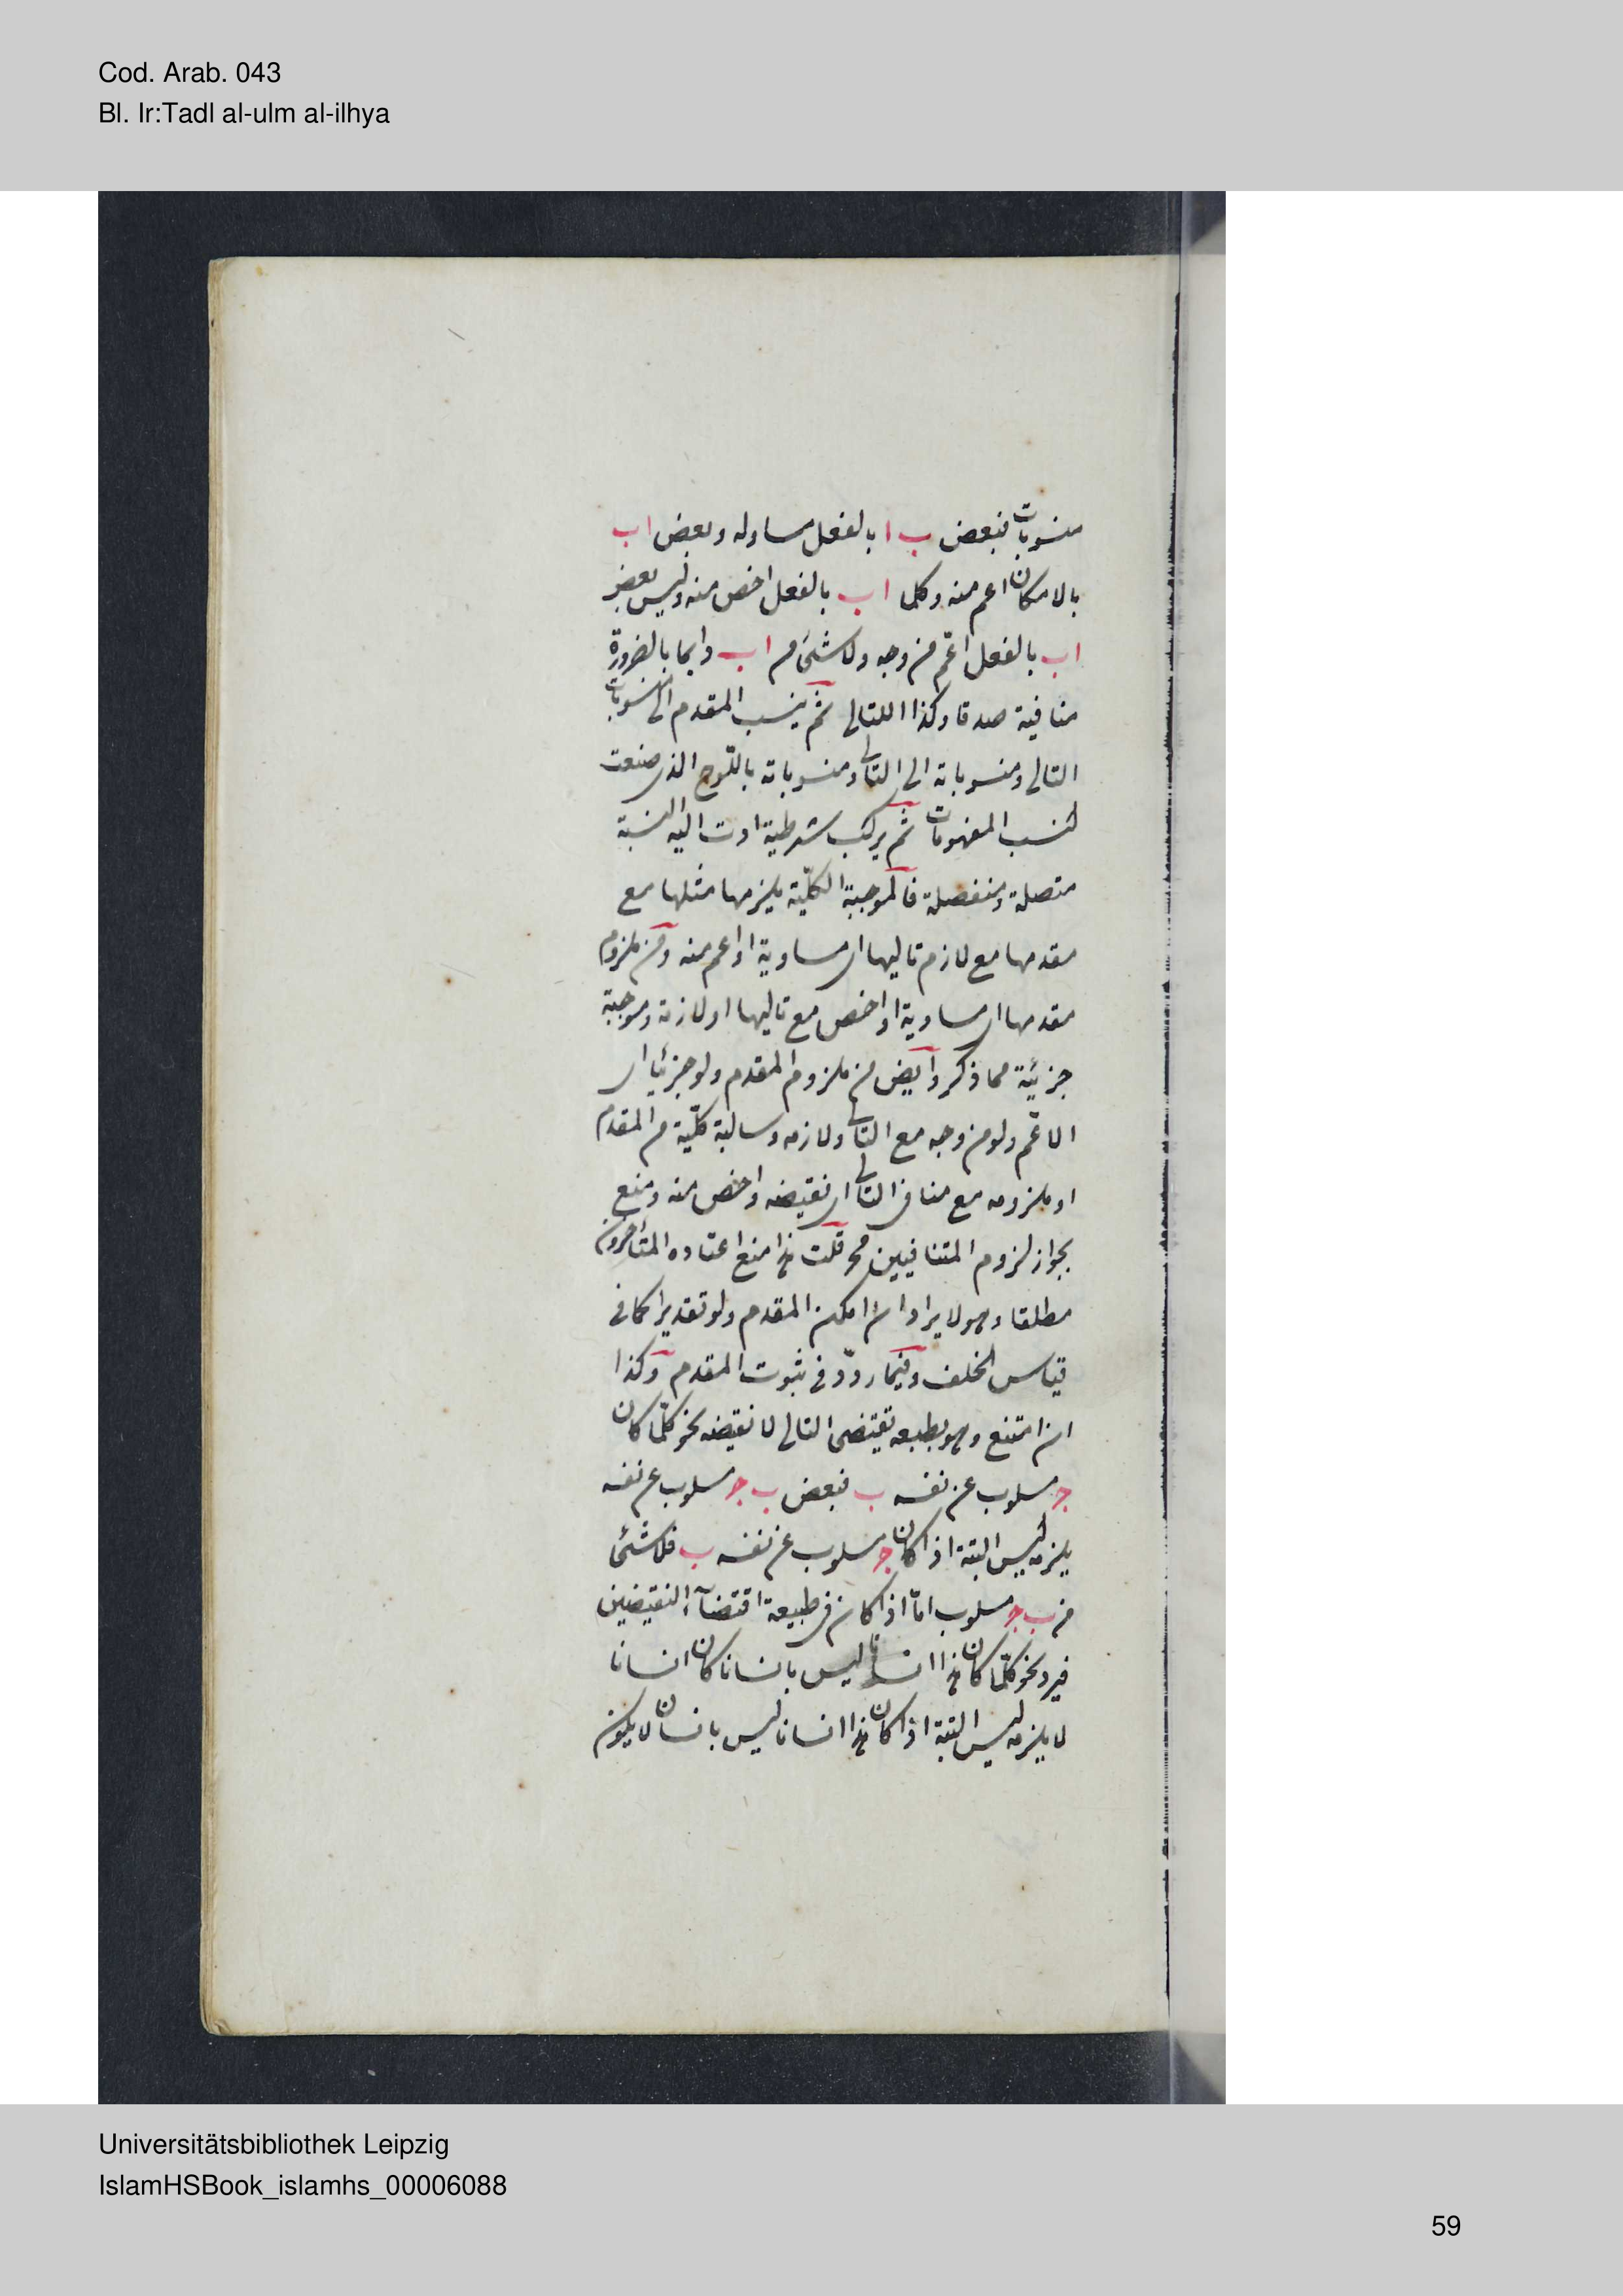 Cod. Arab. 043
Bl. Ir:Tadl al-ulm al-ilhya
منسوبات فبعض ب ا بالفعل مساو له وبعض ا ب
بالامكان اعم منه وكلما ا ب بالفعل اخص منه وليس بعض
ا ب بالفعل اعّم من وجه ولا شئ من ا ب دايما بالضرورة
منافية صدقا وكذا اللتالى ثم ينسب المقدم الى منسوبات
التالى ومنسوباته الى التالى ومنسوباته باللوح الذى صنعت
لنسب المفهومات ثم يركب شرطية ادت اليه النسبة
متصلة ومنفصلة فالموجبة الكلّية يلزمها مثلها مع
مقدمها مع لازم تاليها اى مساوية او اعم منه ومن ملزوم
مقدمها اى مساوية او اخص مع تاليها او لازمه وموجبة
جزئية مما ذكر وايض من ملزوم المقدم ولو جزئيا اى
الاعّم ولو من وجه مع التالى ولازمه وسالبة كلّية من المقدم
او ملزومه مع منافى التالى اى نقيضه واخص منه ومنع
بجواز لزوم المتنافيين مح قلت هذا منع اعتاده المتأخرون
مطلقا وهو لا يراد ان امكن المقدم ولو تقديرا كما فى
قياس الخلف وفيما ردّد فى ثبوت المقدم وكذا
ان امتنع وهو بطبعه يقتضى التالى لا نقيضه نحو كلّما كان
ج مسلوب عن نفسه ب فبعض ب ج مسلوب عن نفسه
يلزمه ليس البتة اذا كان ج مسلوب عن نفسه ب فلا شئ
من ب ج مسلوب امّا اذا كان فى طبيعة اقتضآء النقيضين
فيرد نحو كلّما كان هذا انسانا ليس بانسان كان انسانا
لا يلزمه ليس البتة اذا كان هذا انسانا ليس بانسان لا يكون
Universitätsbibliothek Leipzig
IslamHSBook_islamhs_00006088
59